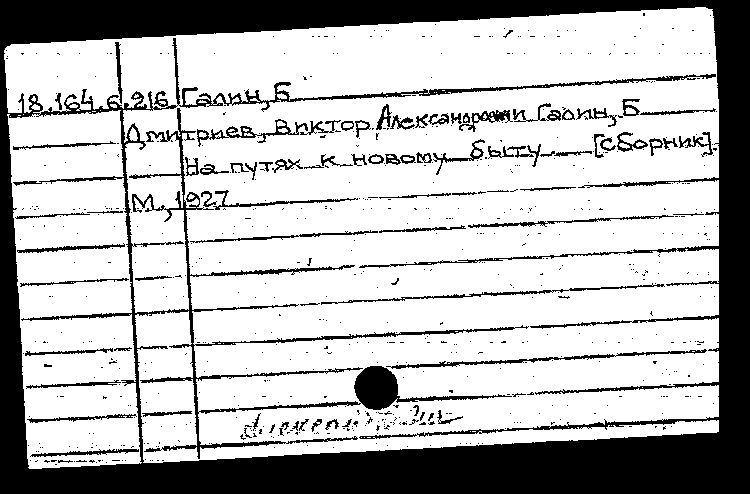 18.164.6.216 Галин, Б
Дмитриев, Виктор Александрович Галин, Б
На путях к новому быту [сборник].
М., 1927